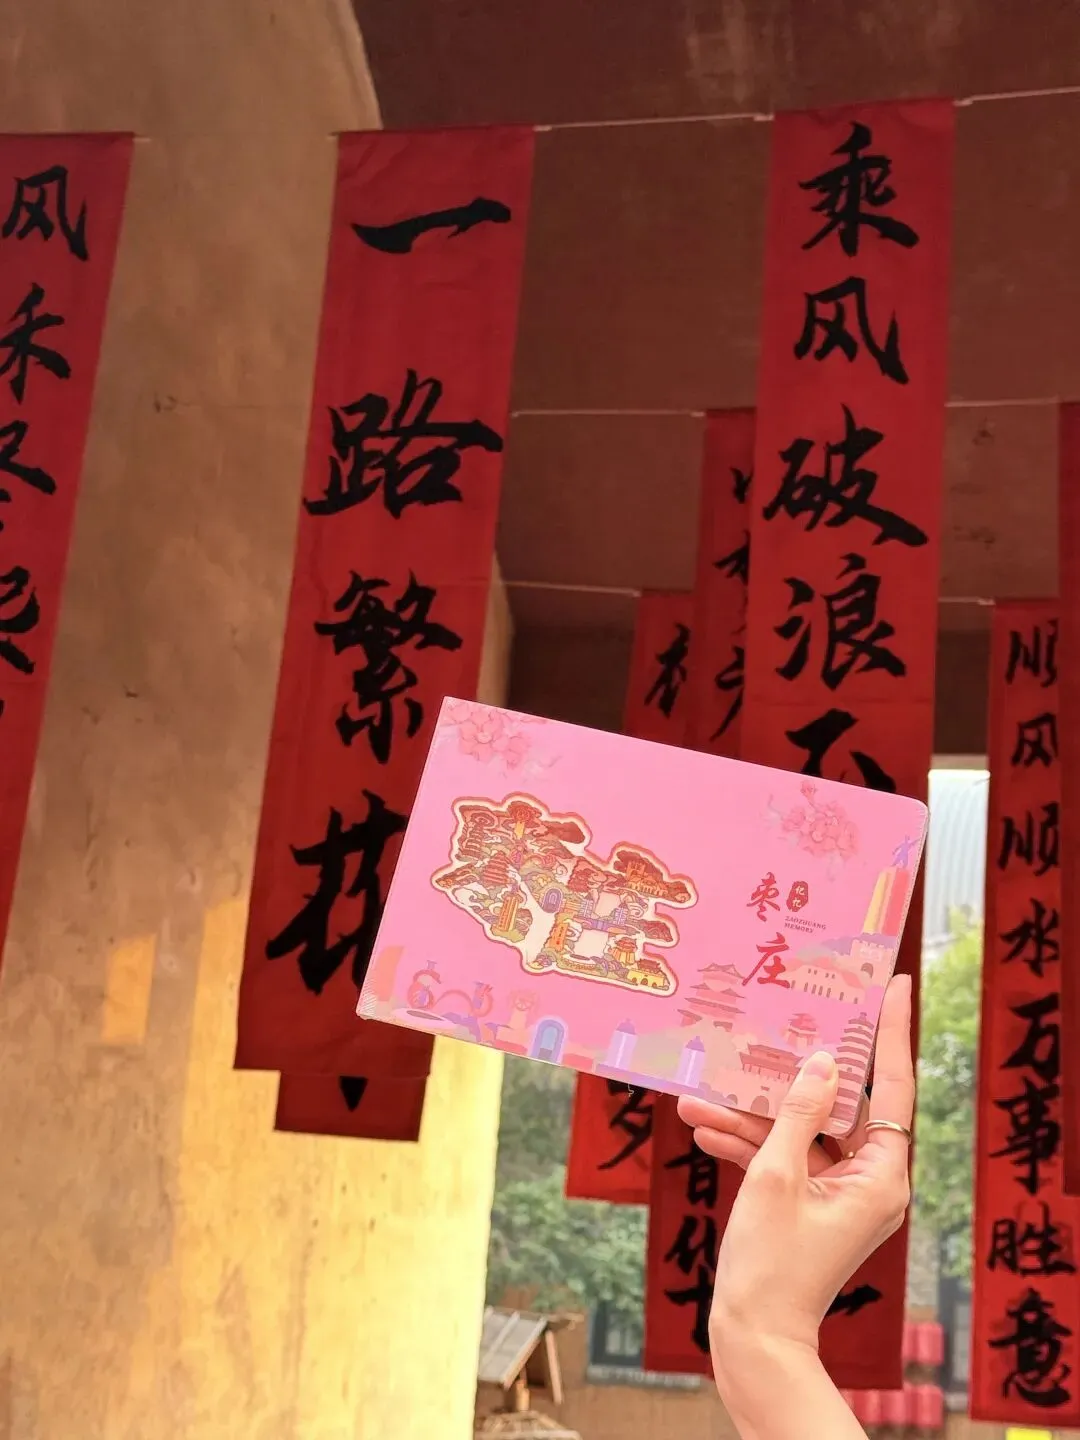 风禾尽起
一路繁花
乘风破浪不
顺风顺水万事胜意
枣庄
记忆
ZAOZHUANG
MEMORY